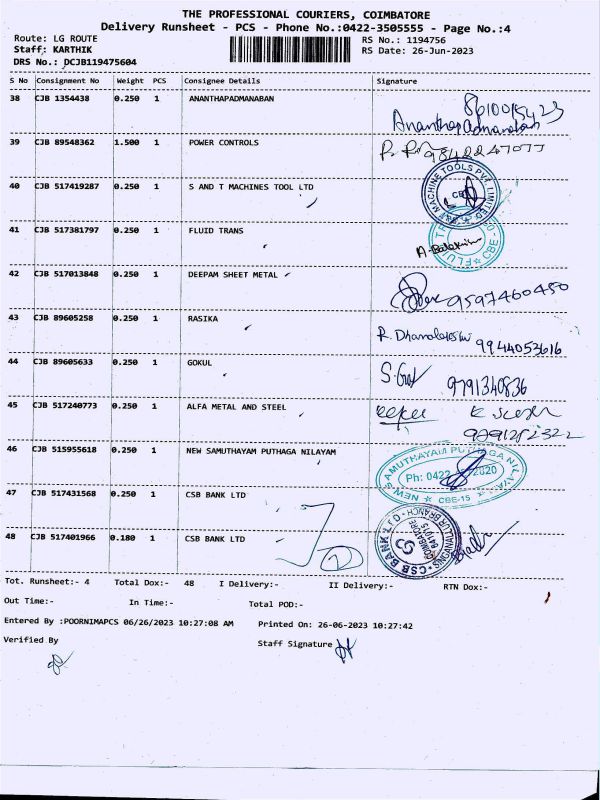 THE PROFESSIONAL COURIERS, COIMBATORE
Delivery Runsheet - PCS - Phone No.:0422-3505555 - Page No.:4
Route: LG ROUTE RS No.: 1194756
Staff: KARTHIK RS Date: 26-Jun-2023
DRS No.: DCJB119475604
S No Consignment No Weight PCS Consignee Details Signature
38 CJB 1354438 0.250 1 ANANTHAPADMANABAN
Ananthapadmanaban
39 CJB 89548362 1.500 1 POWER CONTROLS
40 CJB 517419287 0.250 1 S AND T MACHINES TOOL LTD
MACHINE TOOLS PVT. LIMITED
41 CJB 517381797 0.250 1 FLUID TRANS
42 CJB 517013848 0.250 1 DEEPAM SHEET METAL
9597460450
43 CJB 89605258 0.250 1 RASIKA
9944053616
44 CJB 89605633 0.250 1 GOKUL
9791340836
45 CJB 517240773 0.250 1 ALFA METAL AND STEEL
46 CJB 515955618 0.250 1 NEW SAMUTHAYAM PUTHAGA NILAYAM
NEW SAMUTHAYAM PUTHAGA NILAYAM
Ph: 0422 2020
CBE-15
47 CJB 517431568 0.250 1 CSB BANK LTD
48 CJB 517401966 0.180 1 CSB BANK LTD
CSB BANK LTD
SINGANALLUR BRANCH
COIMBATORE
641015
Tot. Runsheet:- 4 Total Dox:- 48 I Delivery:- II Delivery:- RTN Dox:-
Out Time:- In Time:- Total POD:-
Entered By :POORNIMAPCS 06/26/2023 10:27:08 AM Printed On: 26-06-2023 10:27:42
Verified By Staff Signature